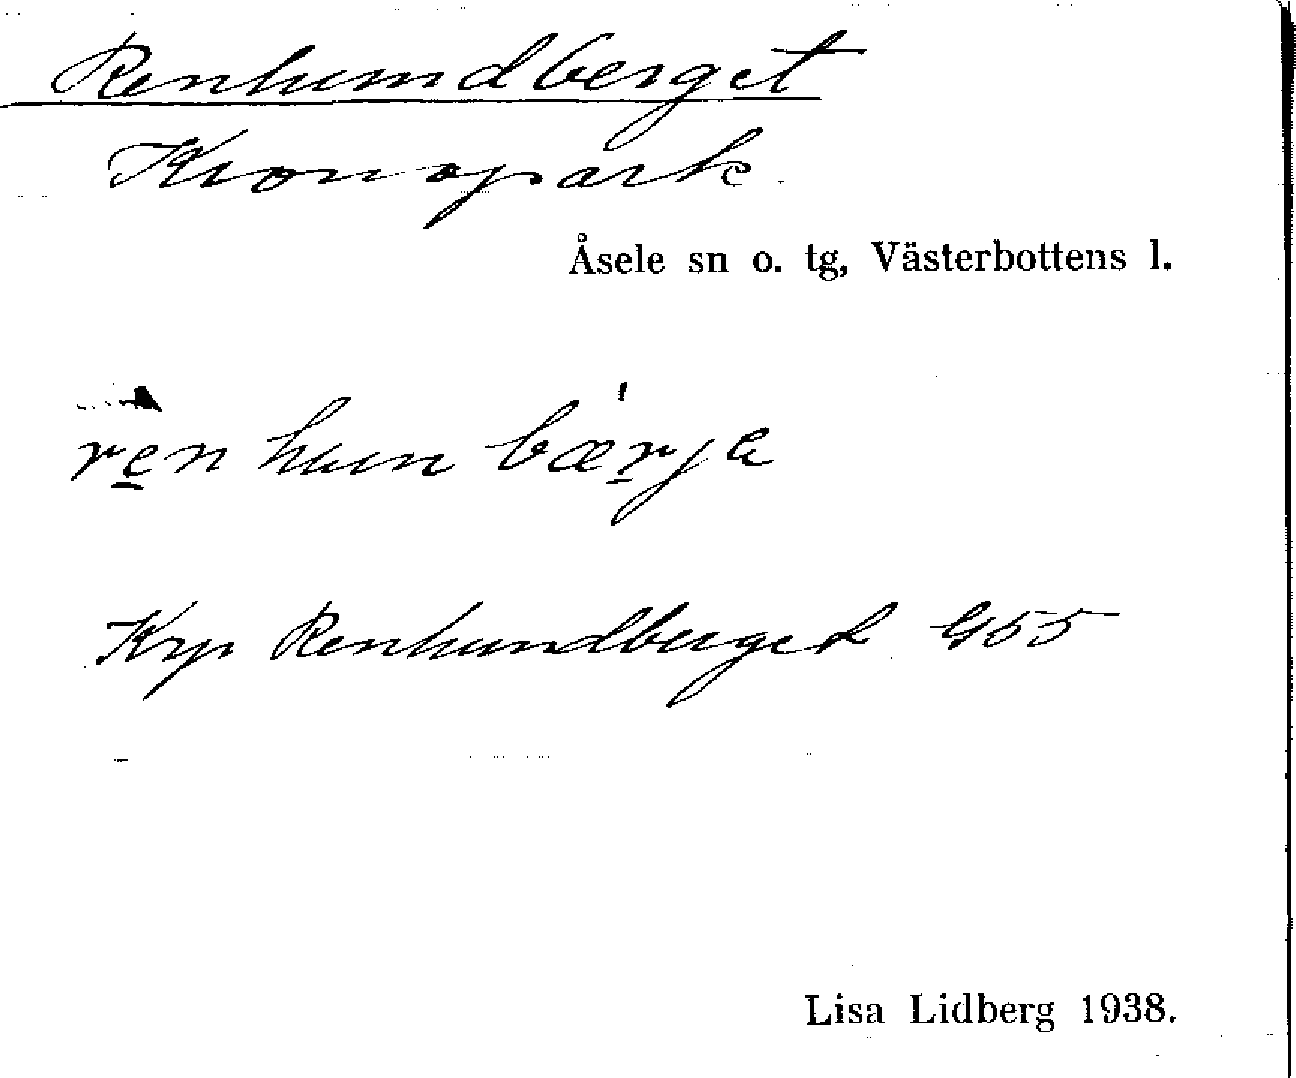 Renhundberget
Kronopark
Åsele sn o. tg, Västerbottens l.
ren hun bærja
Krp Renhundberget G55
Lisa Lidberg 1938.